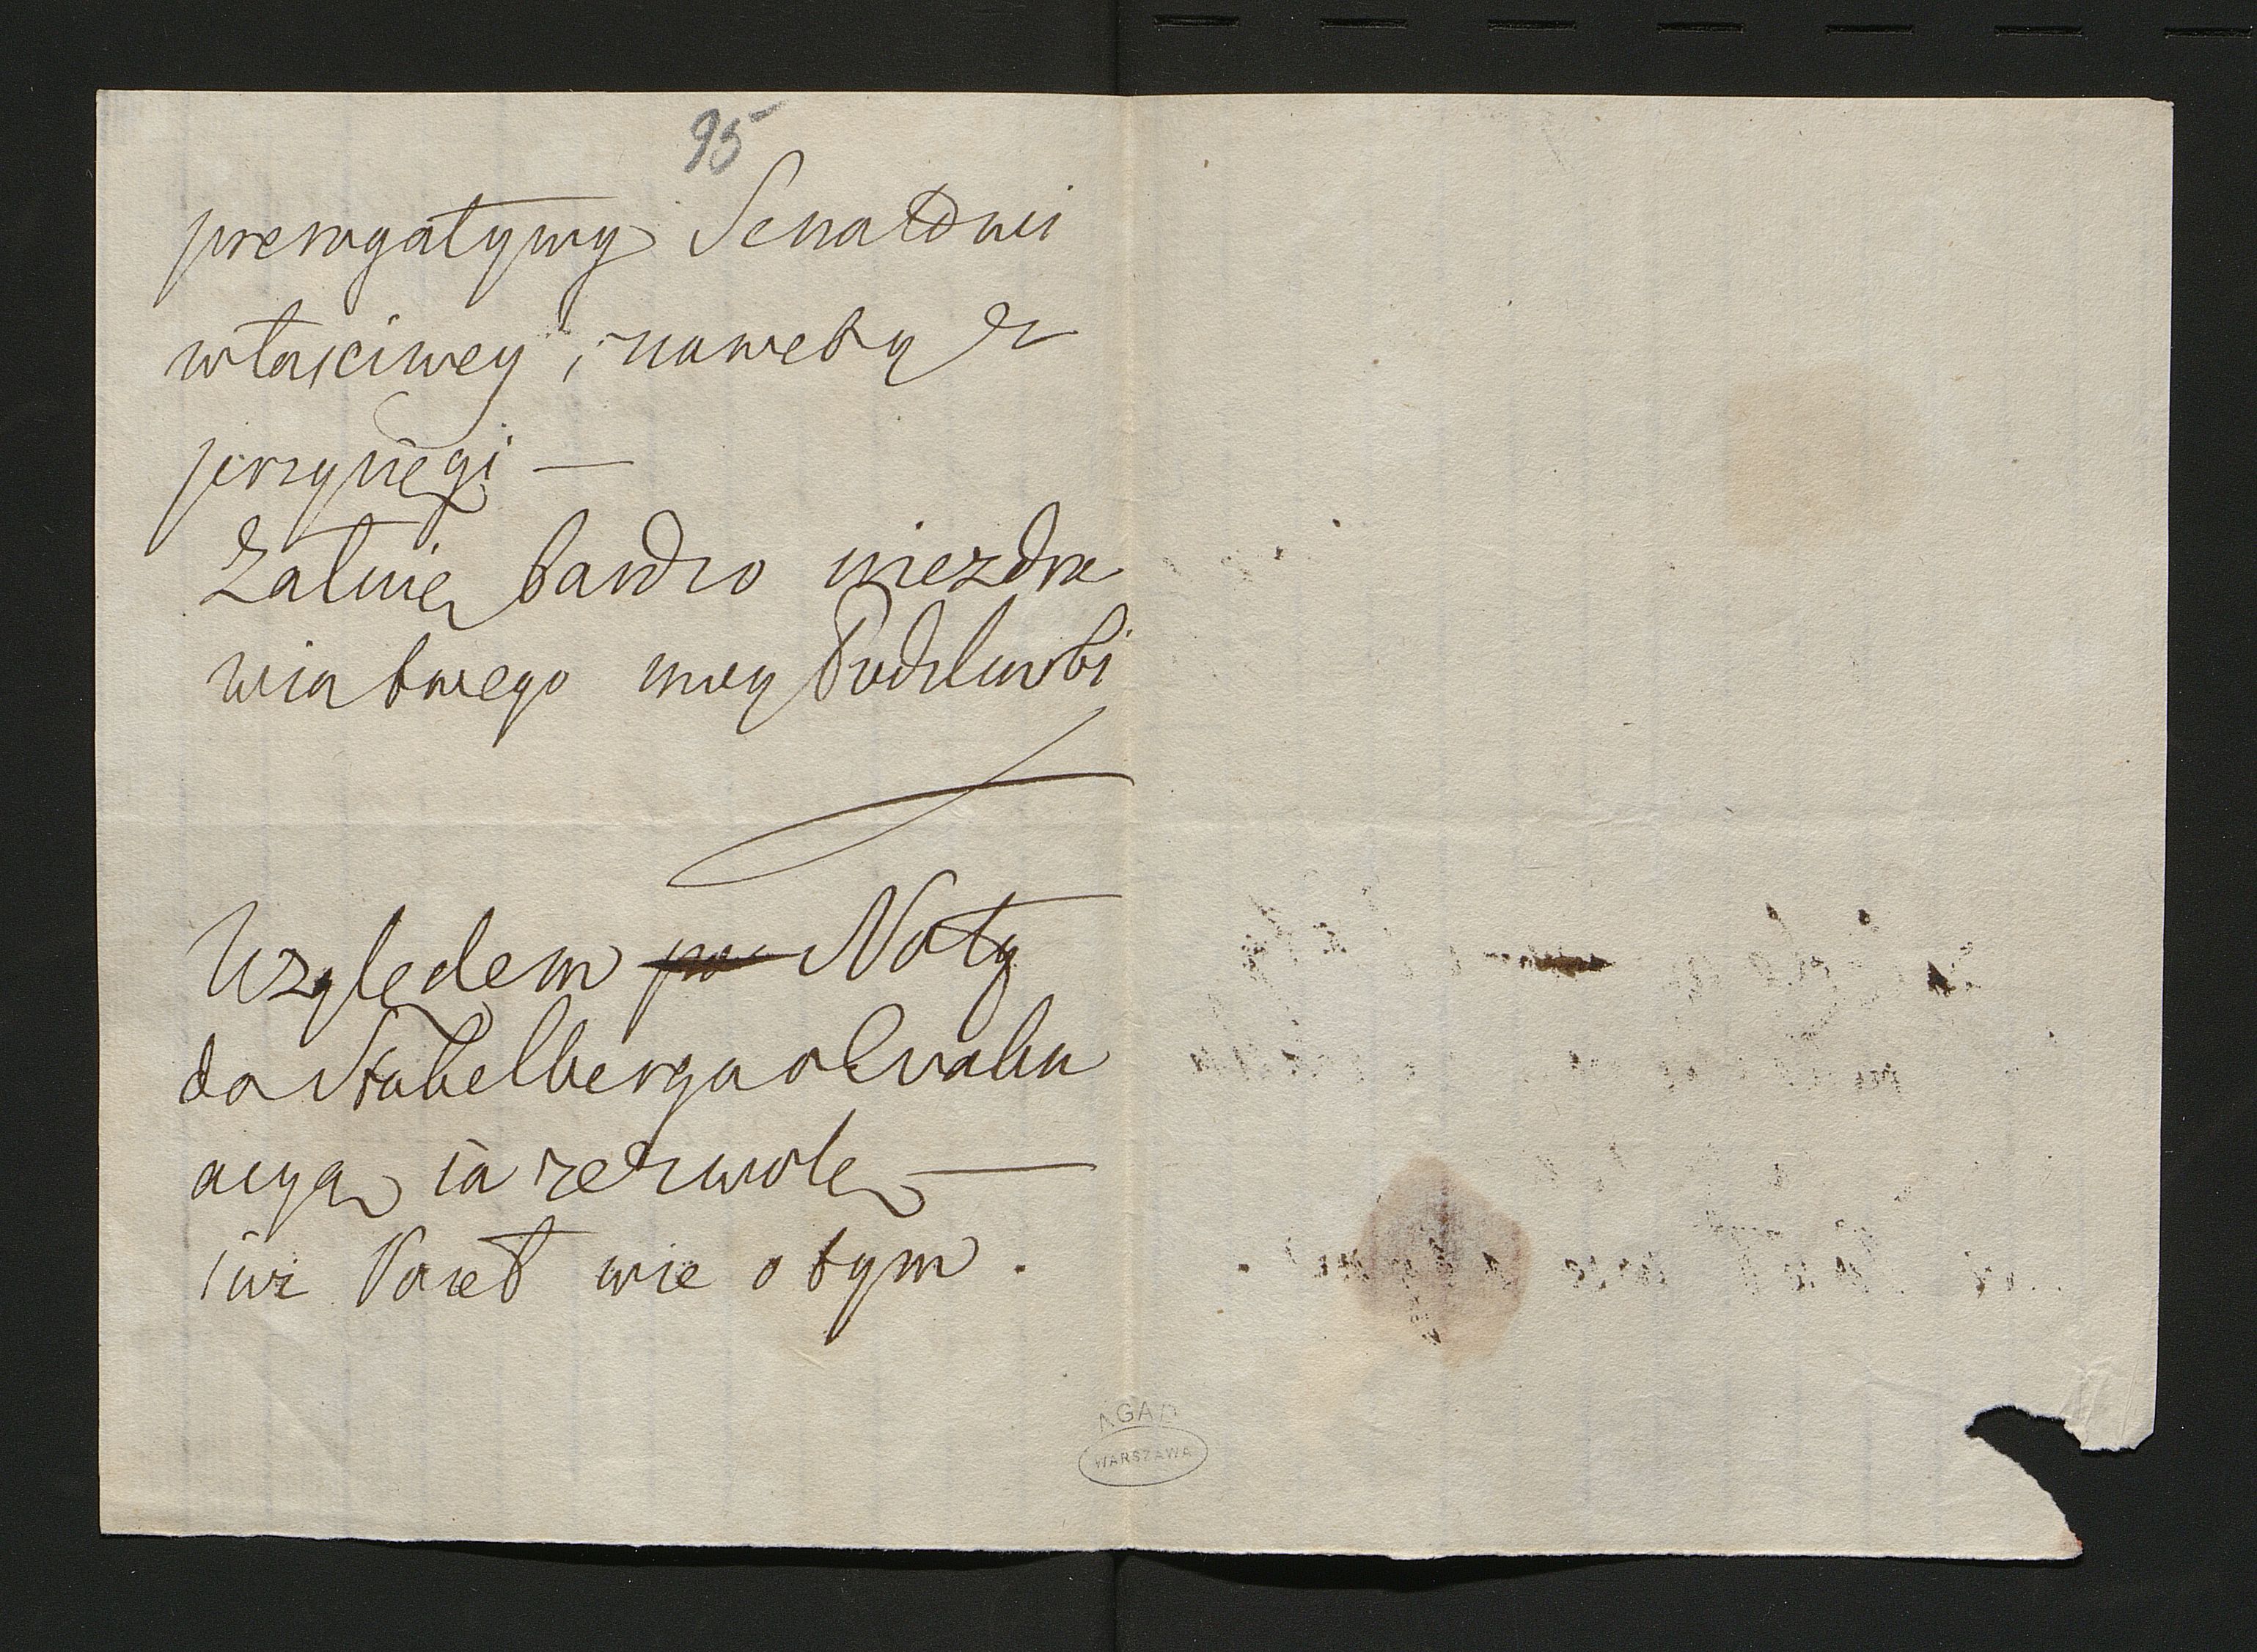 95
prerogatywy Senatowi
właściwey, i nawet y z
przysięgi —
Załuię bardzo niezdro
wia twego moy Podslaroki
Względem Noty
do Stakelberga o Evaku
acyą ia zezwolę —
iuż Poset wie o tym .
AGAD
WARSZAWA